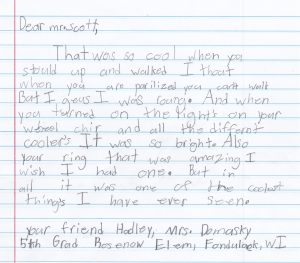 Dear mr.scott,
That was so cool when you
stould up and walked I thout
when you are parilized you can't walk
But I geus I was roung. And when
you turned on the lights on your
wereel chir and all the differnt
cooler's It was so bright. Also
your ring that was amazing I
wish I had one. But in
all it was one of the coolest
things I have ever seen.
your friend Hadley, Mrs. Demasky
5th Grad Rosenow Elem, Fondulack, WI